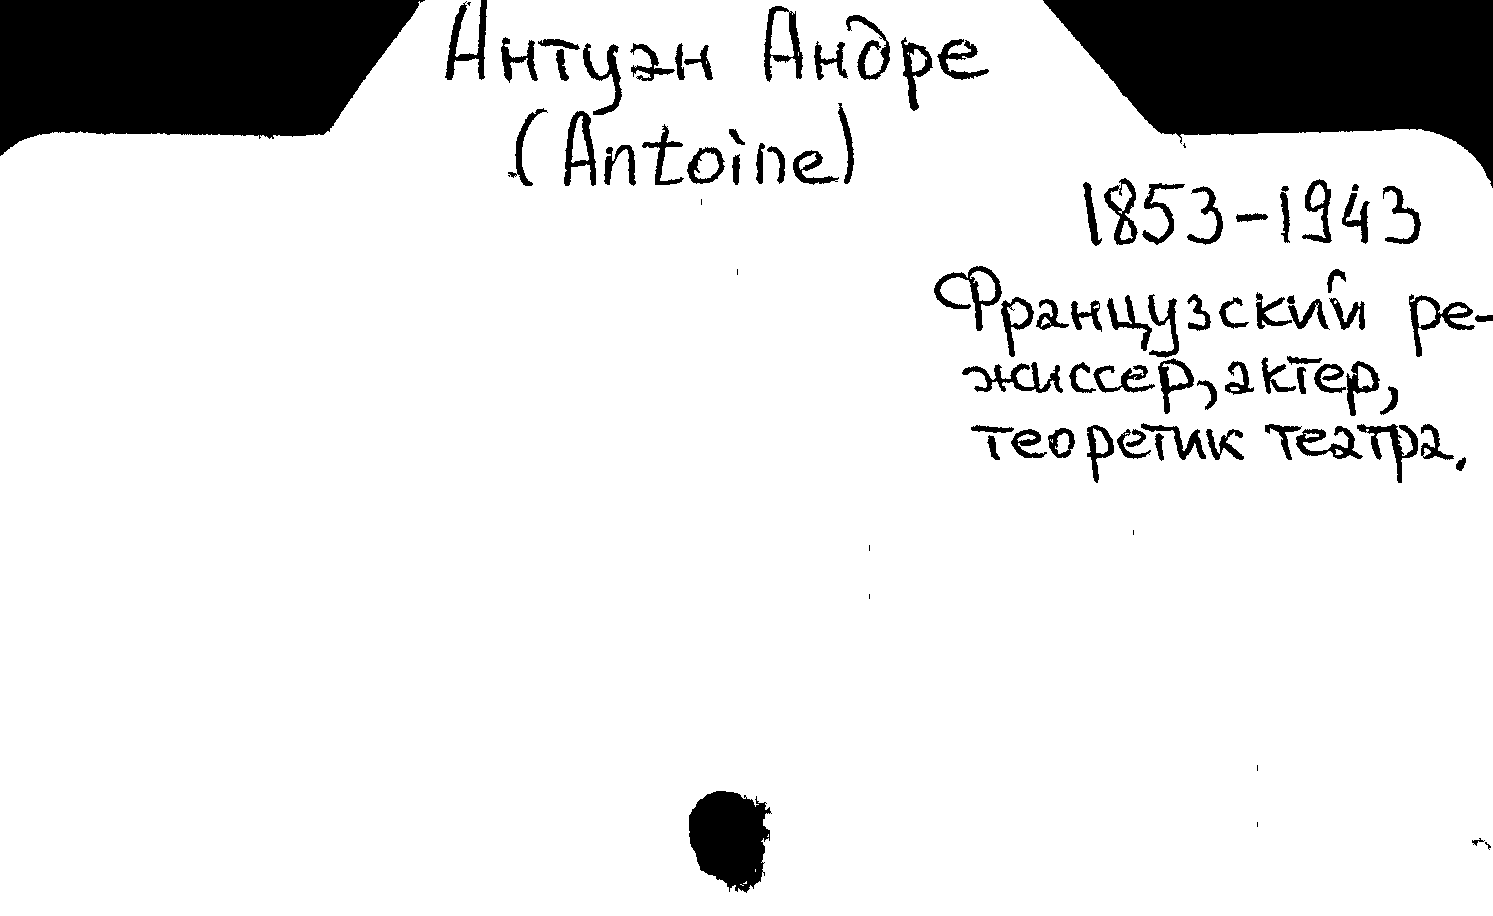 Антуан Андре
(Antoine)
1853-1943
Французский ре-
жиссер, актер,
теоретик театра.